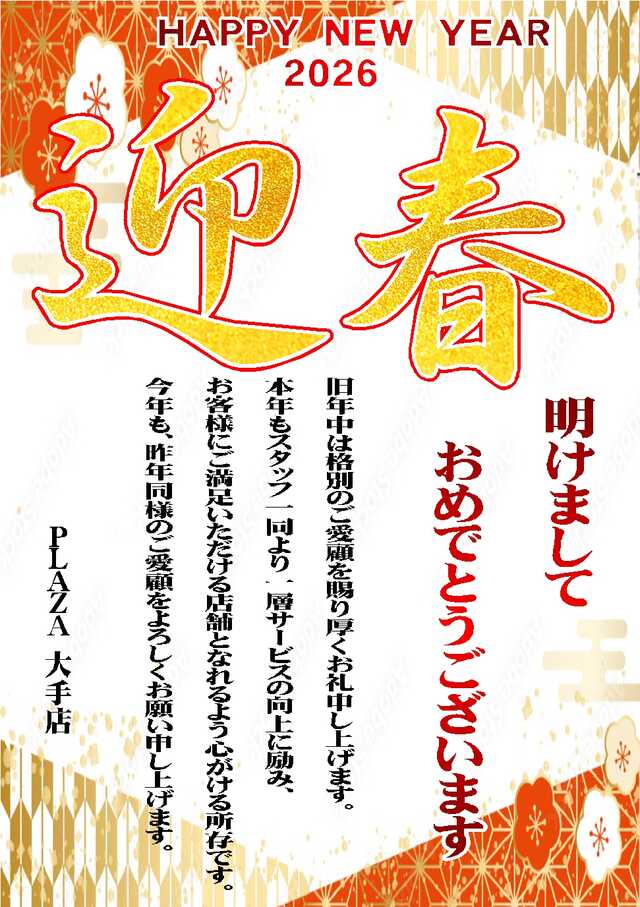 HAPPY NEW YEAR
2026
迎春
明けまして
おめでとうございます
旧年中は格別のご愛顧を賜り厚くお礼申し上げます。
本年もスタッフ一同より一層サービスの向上に励み、
お客様にご満足いただける店舗となれるよう心がける所存です。
今年も、昨年同様のご愛顧をよろしくお願い申し上げます。
PLAZA 大手店